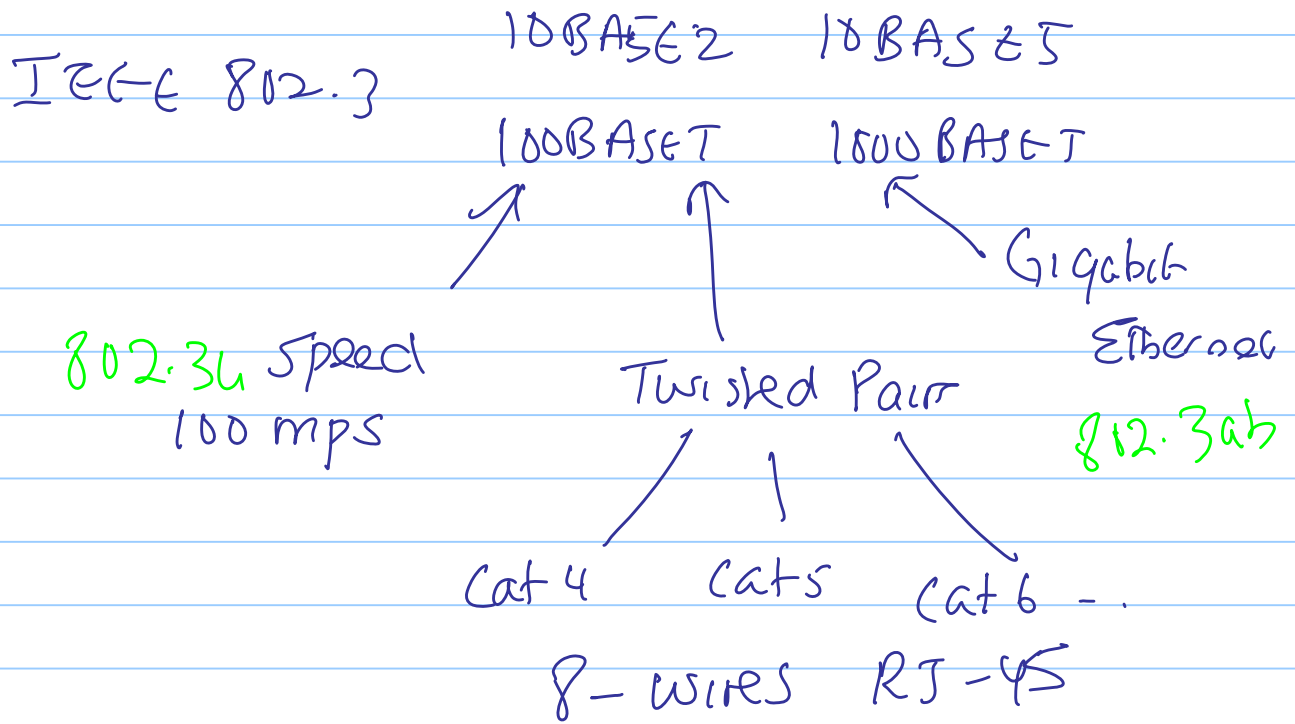 10BASE2 10BASE5
IEEE 802.3
100BASET 1000BASET
Gigabit
Ethernet
802.3u Speed
100 mps
Twisted Pair
802.3ab
Cat 4 Cat 5 Cat 6 - .
8-wires RJ-45